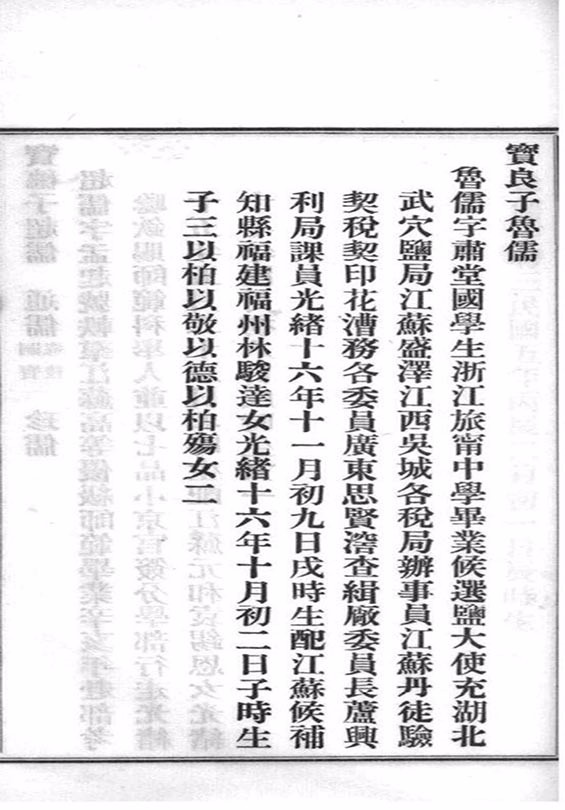 寶良子魯儒
魯儒字肅堂國學生浙江旅甯中學畢業候選鹽大使充湖北
武穴鹽局江蘇盛澤江西吳城各稅局辦事員江蘇丹徒驗
契稅契印花漕務各委員廣東思賢滘查緝廠委員長蘆興
利局課員光緒十六年十一月初九日戌時生配江蘇候補
知縣福建福州林駿達女光緒十六年十月初二日子時生
子三以柏以敬以德以柏殤女二